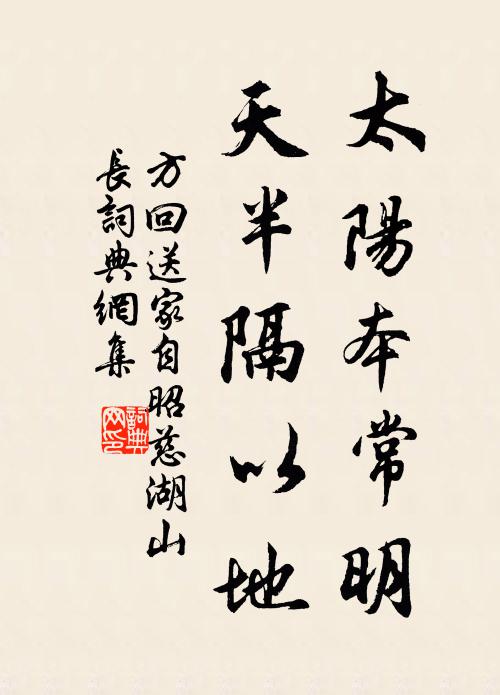 太陽本常明
天半隔以地
方回送家自昭慈湖山
長詞典網集
詞典网印